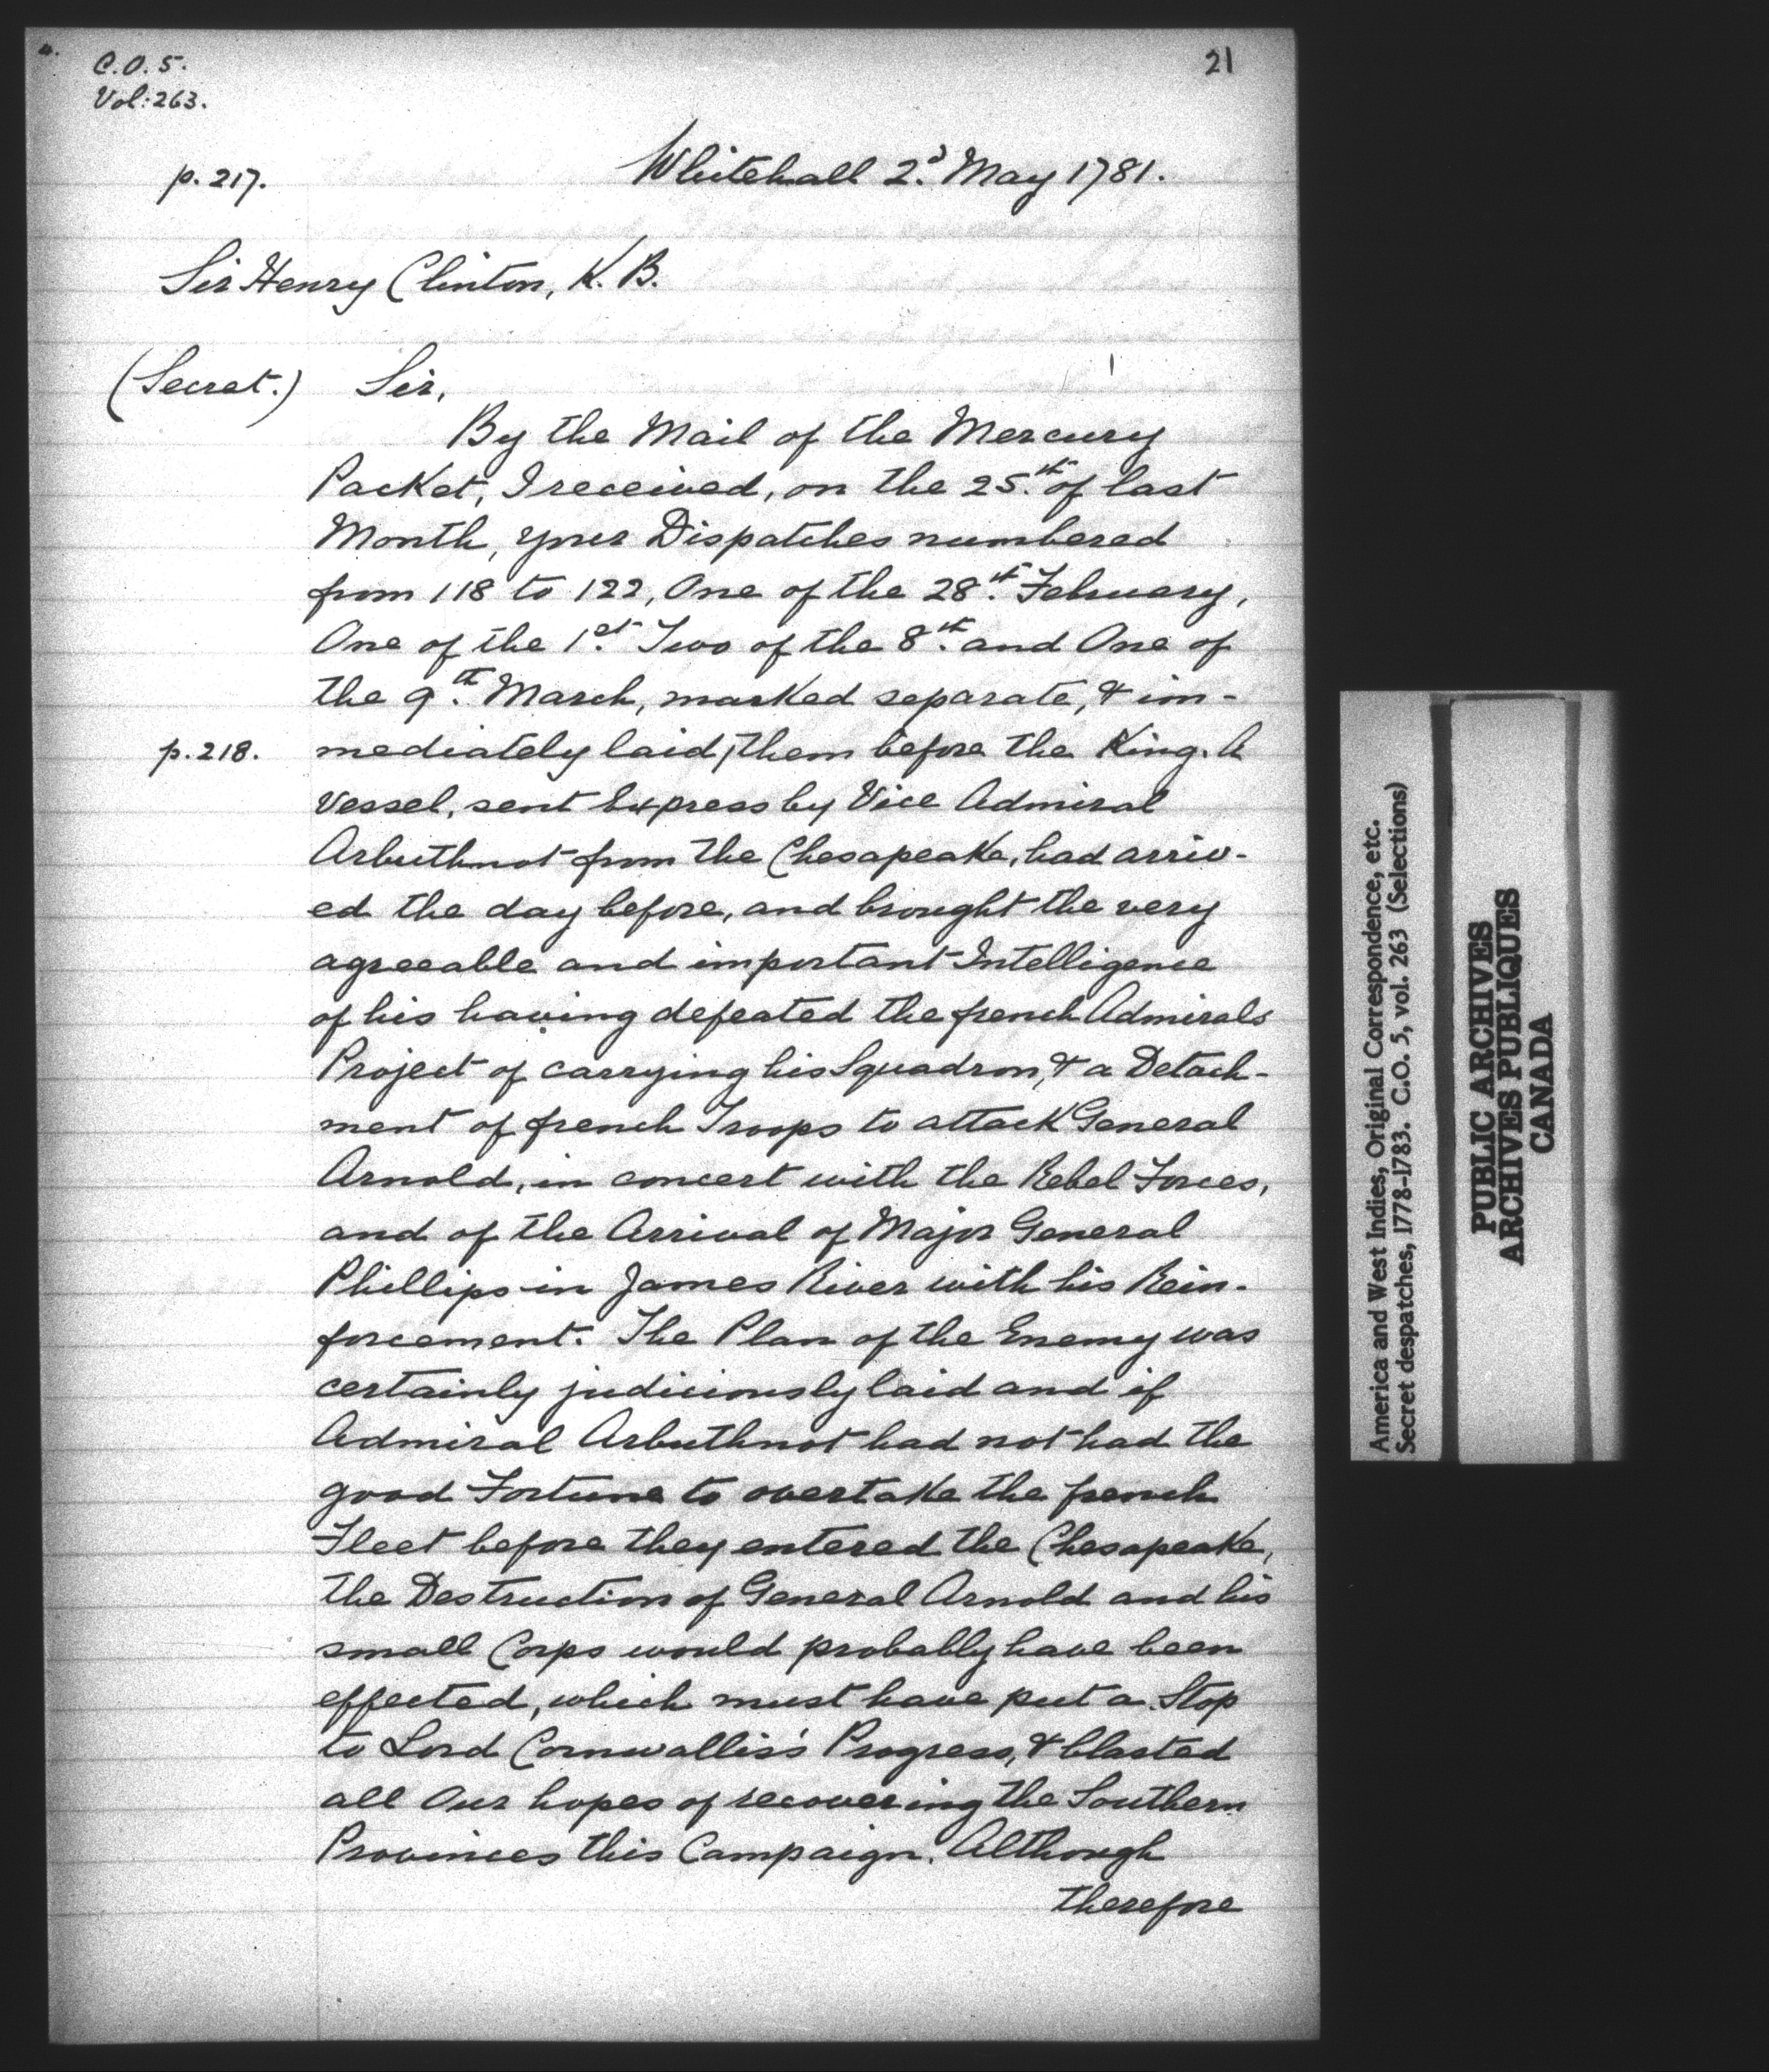 C.O. 5.
Vol: 263.
21
p. 217.
Whitehall 2.d May 1781.
Sir Henry Clinton, K. B.
(Secret.) Sir,
By the Mail of the Mercury
Packet, I received, on the 25.th of last
Month, your Dispatches numbered
from 118 to 122, One of the 28.th February,
One of the 1.st Two of the 8.th and One of
the 9.th March, marked separate, & im-
p. 218. mediately laid/them before the King. A
Vessel, sent Express by Vice Admiral
Arbuthnot from the Chesapeake, had arriv-
ed the day before, and brought the very
agreeable and important Intelligence
of his having defeated the french Admirals
Project of carrying his Squadron, & a Detach-
ment of french Troops to attack General
Arnold, in concert with the Rebel Forces,
and of the Arrival of Major General
Phillips in James River with his Rein-
forcement. The Plan of the Enemy was
certainly judiciously laid and if
Admiral Arbuthnot had not had the
good Fortune to overtake the french
Fleet before they entered the Chesapeake,
the Destruction of General Arnold and his
small Corps would probably have been
effected, which must have put a Stop
to Lord Cornwallis's Progress, & blasted
all Our hopes of recovering the Southern
Provinces this Campaign. Although
therefore
America and West Indies, Original Correspondence, etc.
Secret despatches, 1778-1783. C.O. 5, vol. 263 (Selections)
PUBLIC ARCHIVES
ARCHIVES PUBLIQUES
CANADA